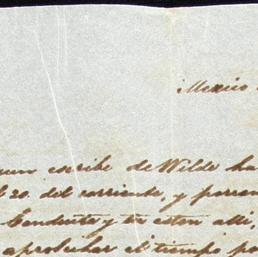 Mexico
escribe de Wilde ha
20. del corriente, y
Conducta y tu estan alli,
aprobechar el tiempo po